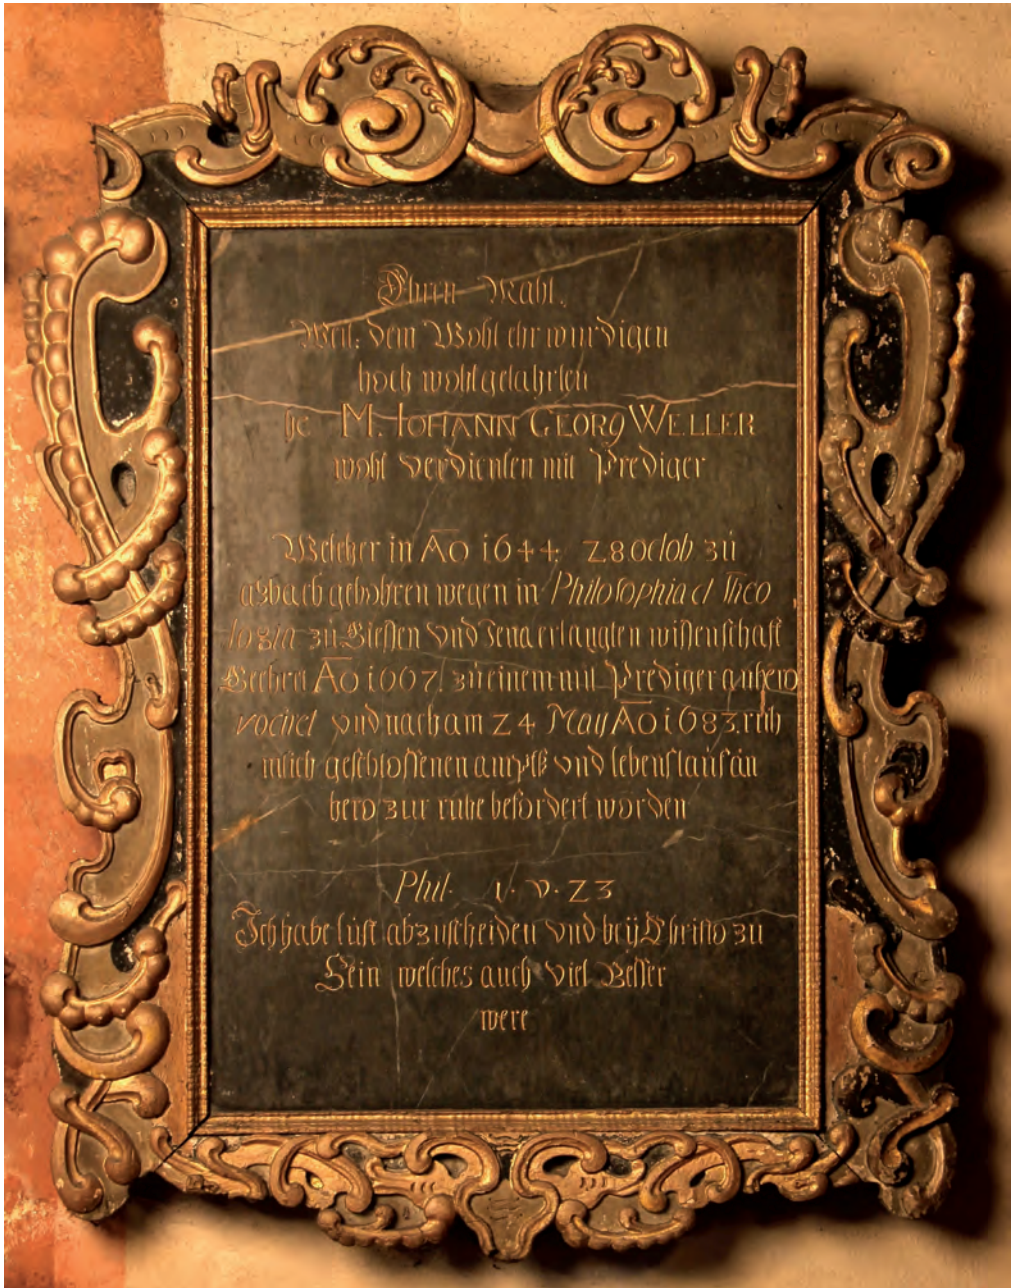 Ehren Mahl.
Weil: dem Wohl ehr wurdigen
hoch wohlgelahrten
he M. IOHANN GEORg WELLER
wohl verdienten mit Prediger
Welcher in AO 1644: 28 octob zu
asbach gebohren wegen in Philosophia et Theo
logia zu Giessen vnd Jena erlangten wissenschaft
AO 1667. zu einem mit Prediger anhero
vociret vnd nach am 24 May AO 1683. rüh
mlich geschlossenen ampts vnd lebenslauf an
hero zur ruhe befordert worden
Phil. 1. v. 23
Ich habe lust abzuscheiden vnd beÿ Christo zu
Sein welches auch viel Besser
were